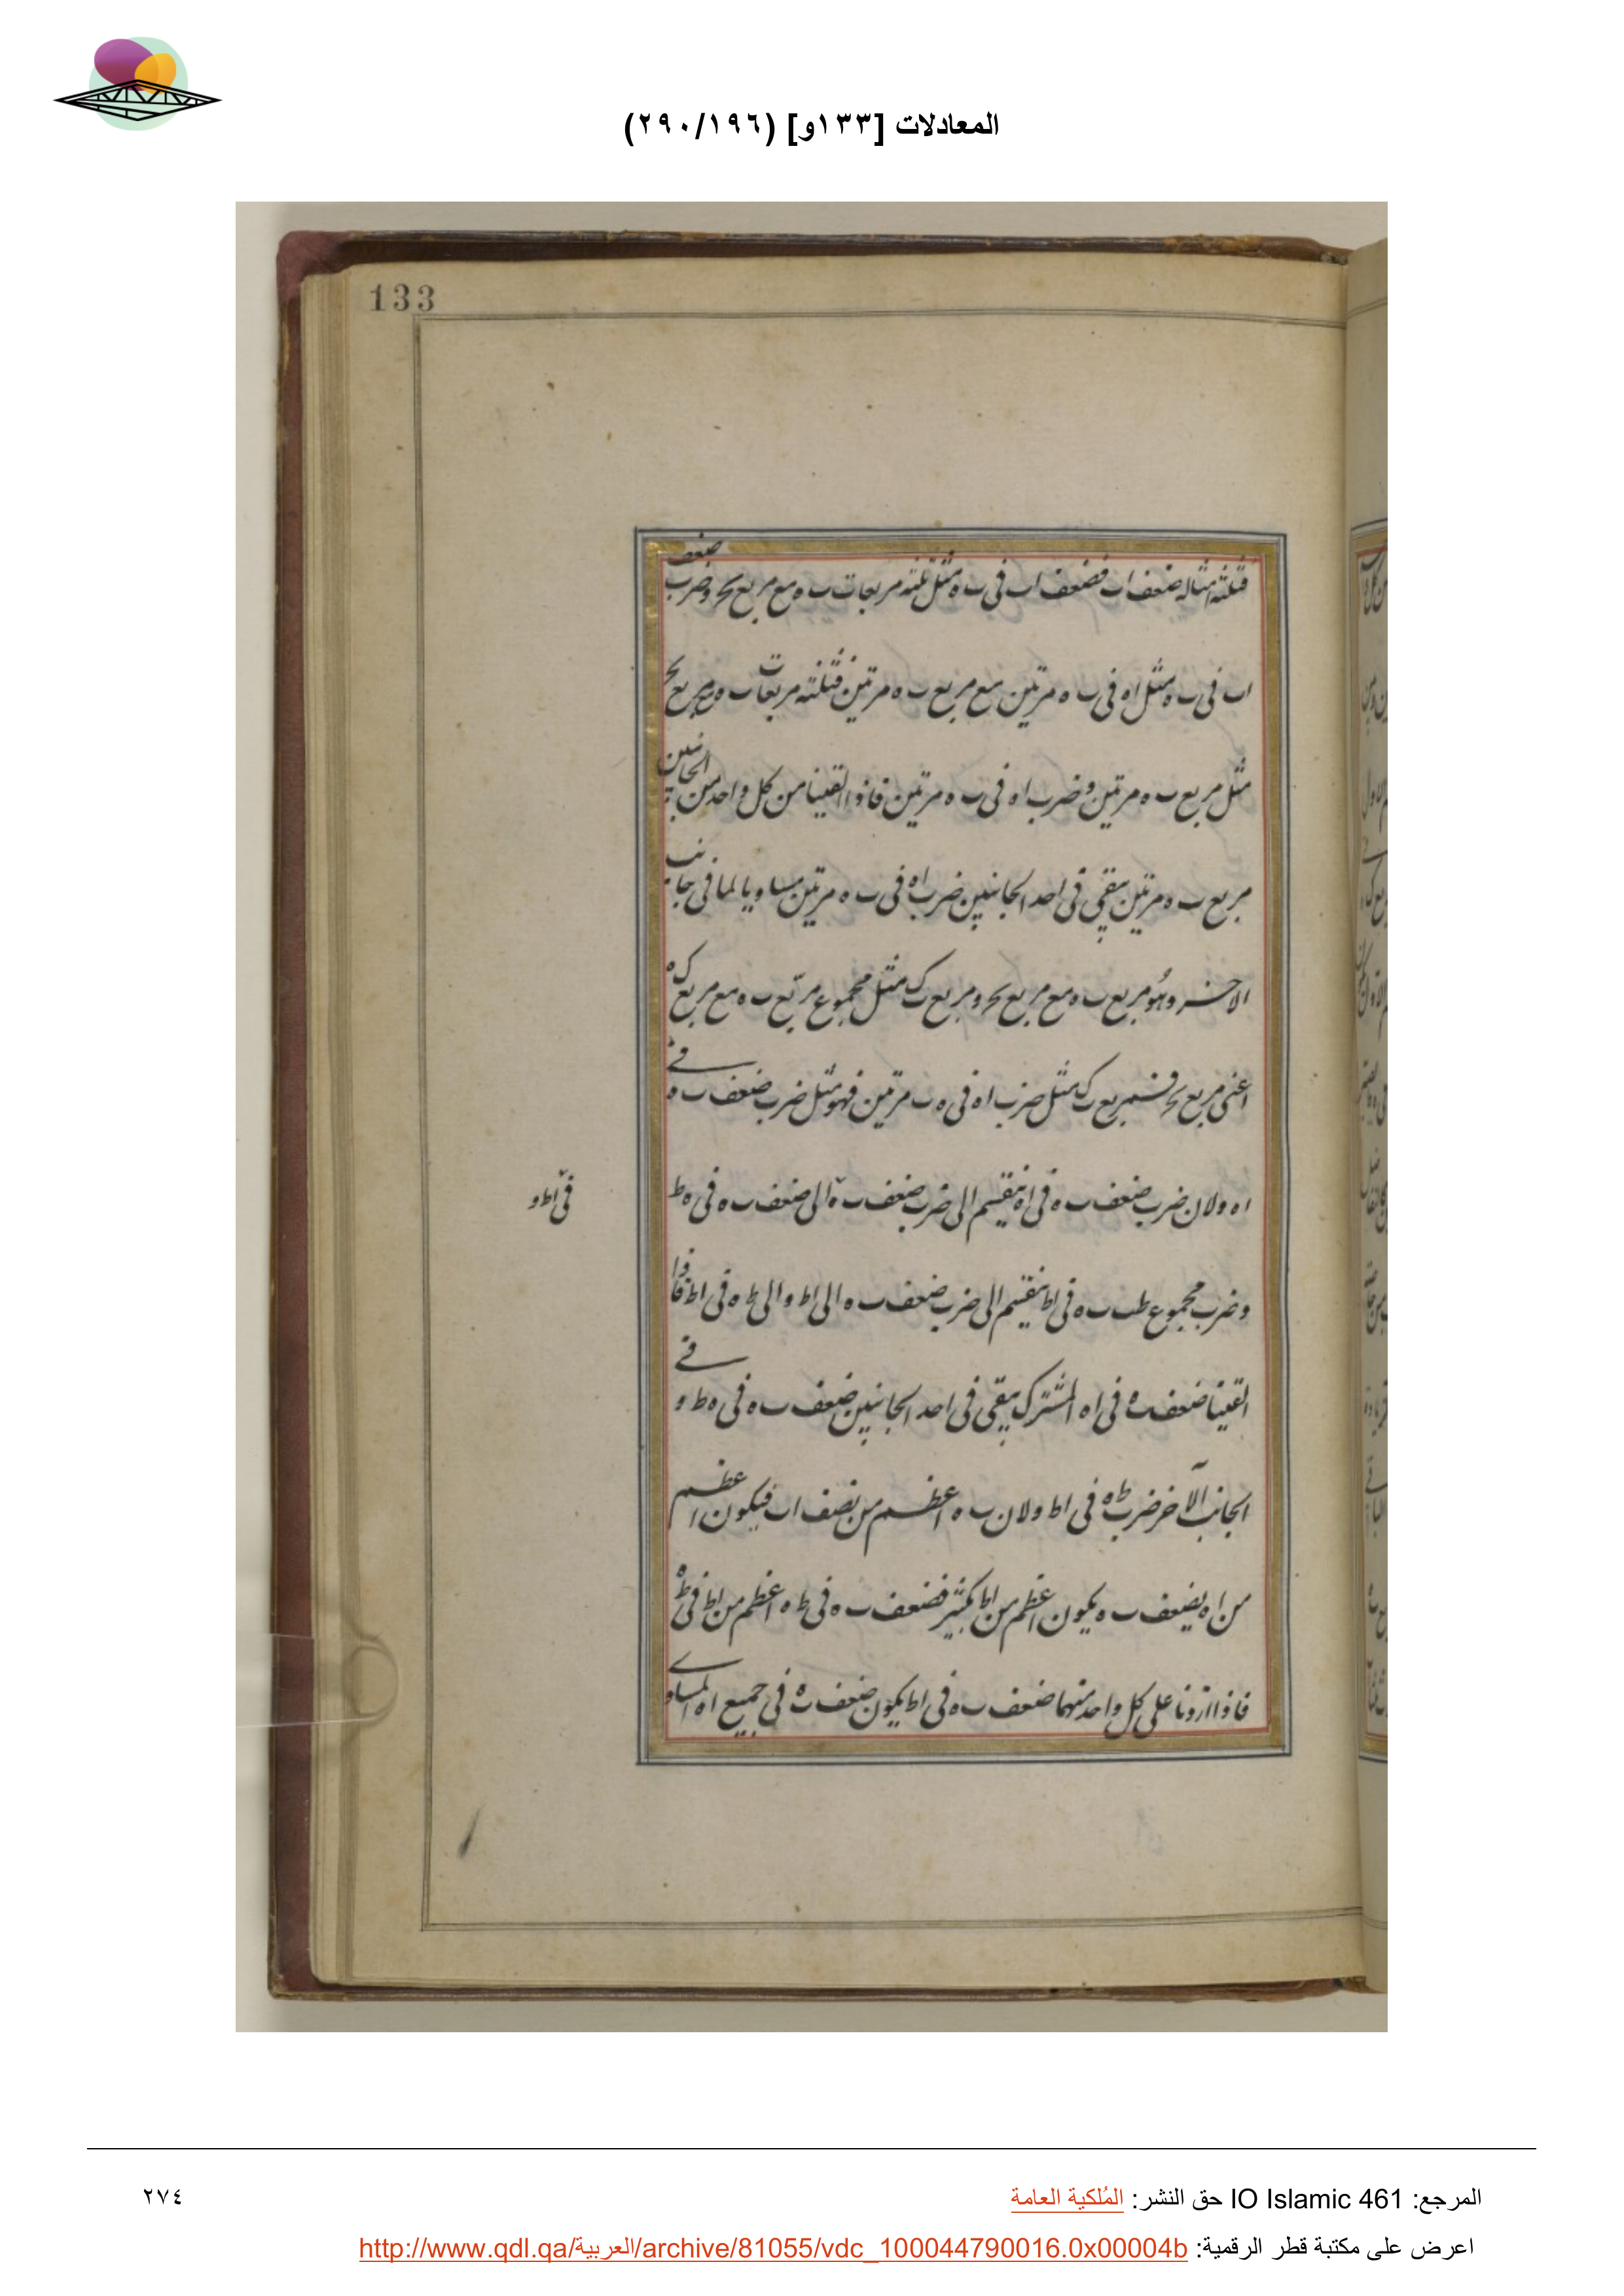 المعادلات [١٣٣و] (٢٩٠/١٩٦)
133
فثلثة امثاله ضعف اب فضعف اب فى ب ه مثل ثلثة مربعات ب ه مع مربع بحر وضرب ضعف
اب فى ب ه مثل اه فى ب ه مرتين مع مربع ب ه مرتين فثلثة مربعات ب ه مع مربع بحر
مثل مربع ب ه مرتين وضرب اه فى ب ه مرتين فاذا القينا من كل واحد من الجانبين
مربع ب ه مرتين يبقى فى احد الجانبين ضرب اه فى ب ه مرتين مساويا لما فى جانب
الاخر وهو مربع ب ه مع مربع بحر ومربع ب ك مثل مجموع مربع ب ه مع مربع ك ه
اعنى مربع بحر فمربع ب ك مثل ضرب اه فى ه ب مرتين فهو مثل ضرب ضعف ب ه فى
اه ولان ضرب ضعف ب ه فى اه ينقسم الى ضرب ضعف ب ه الى ضعف ب ه فى ه ط
فى اط و
وضرب مجموع طب ب ه فى اط ينقسم الى ضرب ضعف ب ه الى اط والى ط ه فى اط فاذا
القينا ضعف ب ه فى اه المشترك يبقى فى احد الجانبين ضعف ب ه فى ه ط و
الجانب الآخر ضرب ط ه فى اط ولان ب ه اعظم من نصف اب فيكون اعظم
من اه بضعف ب ه يكون اعظم من اط بكثير فضعف ب ه فى ط ه اعظم من اط فى ط ه
فاذا ازدنا على كل واحد منهما ضعف ب ه فى اط يكون ضعف ب ه فى جميع اه المساوى
المرجع: IO Islamic 461 حق النشر: المُلكية العامة
٢٧٤
اعرض على مكتبة قطر الرقمية: http://www.qdl.qa/العربية/archive/81055/vdc_100044790016.0x00004b